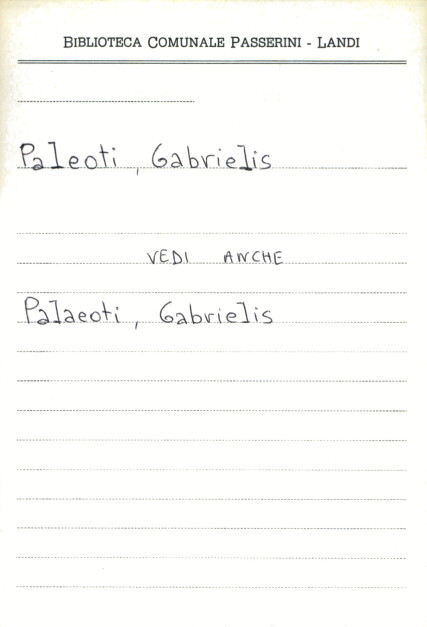 BIBLIOTECA COMUNALE PASSERINI - LANDI
Paleoti, Gabrielis
VEDI ANCHE
Palaeoti, Gabrielis